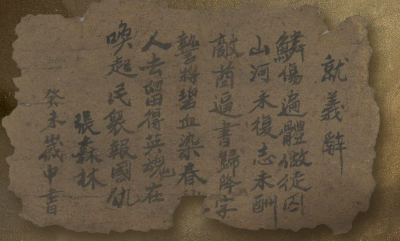 就義辭
鱗傷遍體做徒囚
山河未復志未酬
敵酋逼書歸降字
誓將碧血染春
人去留得英魂在
喚起民衆報國仇
張森林
癸未歲申書